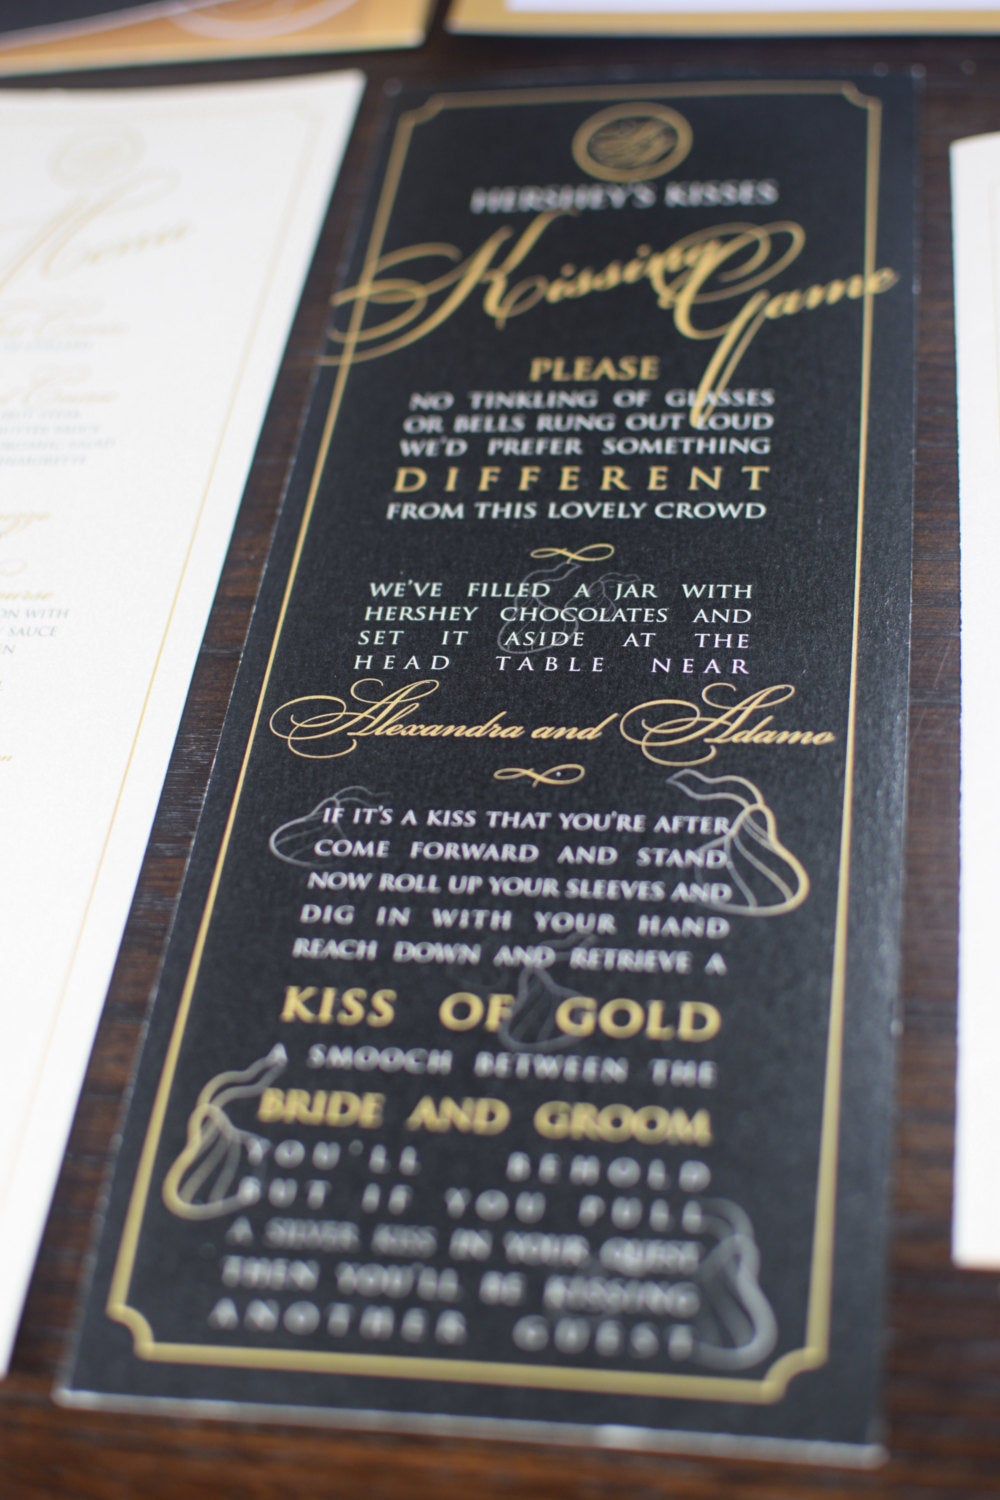 HERSHEY'S KISSES
Kissing Game
PLEASE
NO TINKLING OF GLASSES
OR BELLS RUNG OUT LOUD
WE'D PREFER SOMETHING
DIFFERENT
FROM THIS LOVELY CROWD
WE'VE FILLED A JAR WITH
HERSHEY CHOCOLATES AND
SET IT ASIDE AT THE
HEAD TABLE NEAR
Alexandra and Adamo
IF IT'S A KISS THAT YOU'RE AFTER
COME FORWARD AND STAND
NOW ROLL UP YOUR SLEEVES AND
DIG IN WITH YOUR HAND
REACH DOWN AND RETRIEVE A
KISS OF GOLD
A SMOOCH BETWEEN THE
BRIDE AND GROOM
YOU'LL BEHOLD
BUT IF YOU PULL
A SILVER KISS IN YOUR QUEST
THEN YOU'LL BE KISSING
ANOTHER GUEST
Menu
ORGANIC SALAD
ON WITH
SAUCE